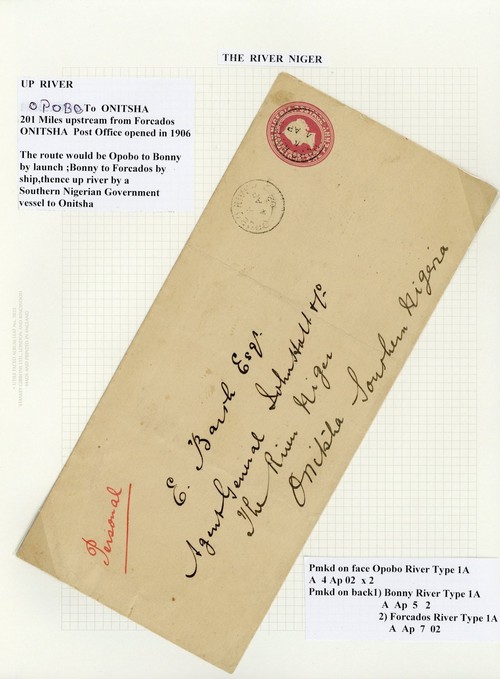 THE RIVER NIGER
UP RIVER
OPOBO To ONITSHA
201 Miles upstream from Forcados
ONITSHA Post Office opened in 1906
The route would be Opobo to Bonny
by launch ;Bonny to Forcados by
ship,thence up river by a
Southern Nigerian Government
vessel to Onitsha
E. Barth Esqr.
Agent General John Holt & Co
The River Niger
Onitsha Southern Nigeria
Personal
Pmkd on face Opobo River Type 1A
A 4 Ap 02 x 2
Pmkd on back1) Bonny River Type 1A
A Ap 5 2
2) Forcados River Type 1A
A Ap 7 02